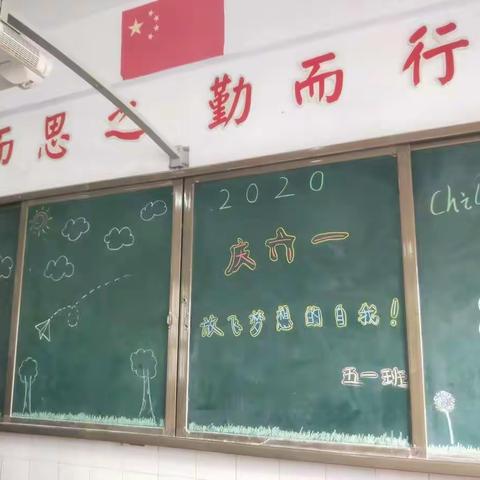 而思之 勤而行
2020
庆六一
放飞梦想的自我!
五一班
Chil